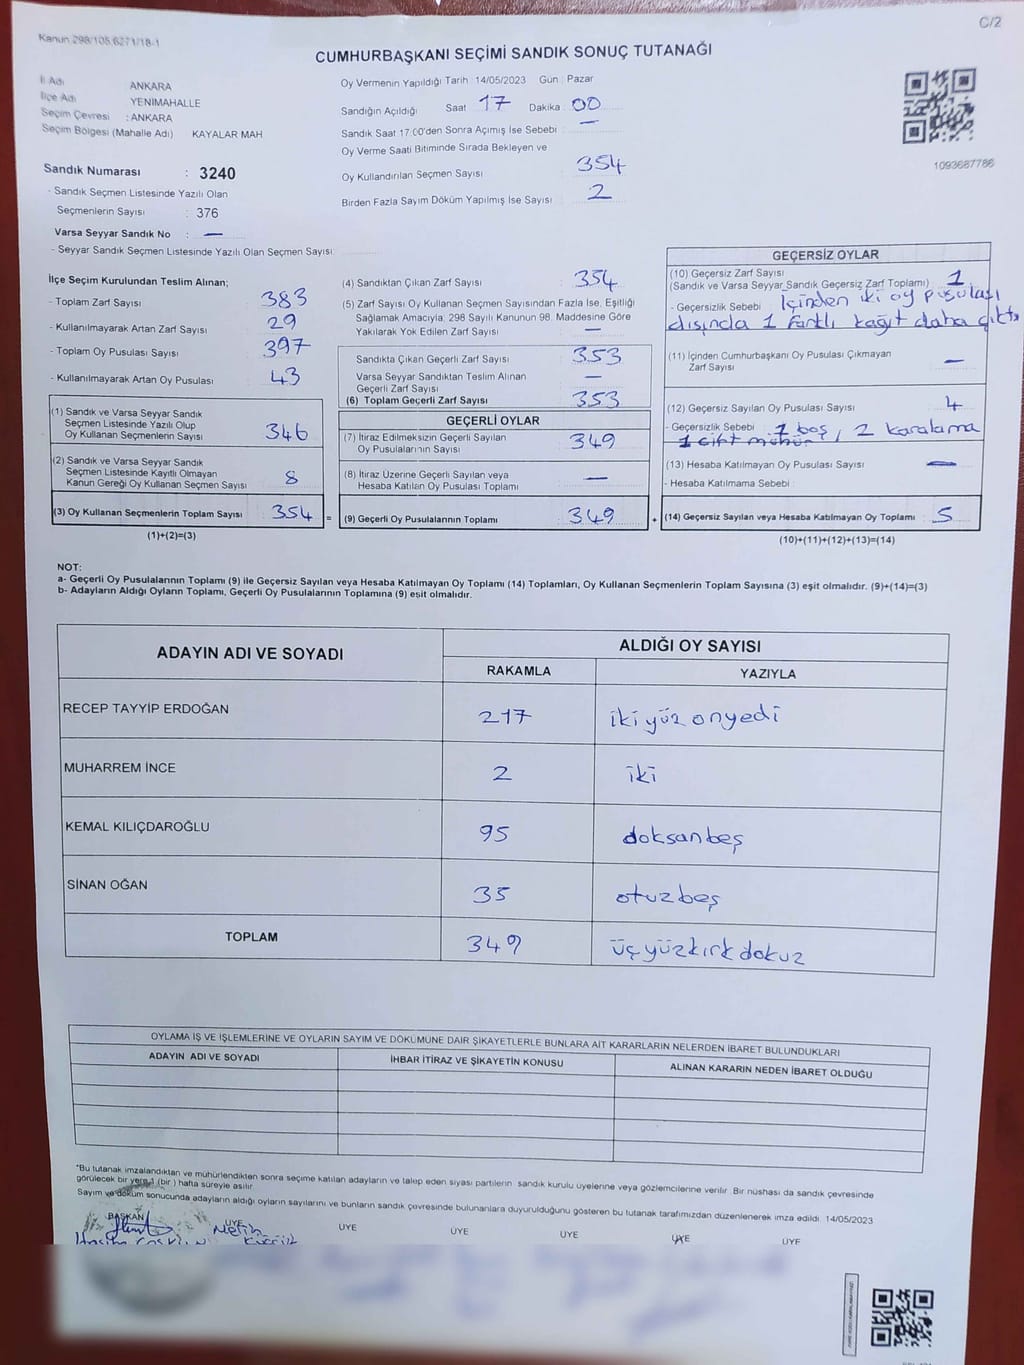 Kanun 298/105,6271/18-1
C/2
CUMHURBAŞKANI SEÇİMİ SANDIK SONUÇ TUTANAĞI
İl Adı ANKARA
İlçe Adı YENIMAHALLE
Seçim Çevresi : ANKARA
Seçim Bölgesi (Mahalle Adı) KAYALAR MAH
Sandık Numarası : 3240
- Sandık Seçmen Listesinde Yazılı Olan
Seçmenlerin Sayısı : 376
Varsa Seyyar Sandık No : —
- Seyyar Sandık Seçmen Listesinde Yazılı Olan Seçmen Sayısı
Oy Vermenin Yapıldığı Tarih : 14/05/2023 Gün : Pazar
Sandığın Açıldığı Saat 17 Dakika 00
Sandık Saat 17:00'den Sonra Açımış İse Sebebi : —
Oy Verme Saati Bitiminde Sırada Bekleyen ve
Oy Kullandırılan Seçmen Sayısı 354
Birden Fazla Sayım Döküm Yapılmış İse Sayısı 2
1093687786
İlçe Seçim Kurulundan Teslim Alınan;
- Toplam Zarf Sayısı 383
- Kullanılmayarak Artan Zarf Sayısı 29
- Toplam Oy Pusulası Sayısı 397
- Kullanılmayarak Artan Oy Pusulası 43
(1) Sandık ve Varsa Seyyar Sandık
Seçmen Listesinde Yazılı Olup
Oy Kullanan Seçmenlerin Sayısı 346
(2) Sandık ve Varsa Seyyar Sandık
Seçmen Listesinde Kayıtlı Olmayan
Kanun Gereği Oy Kullanan Seçmen Sayısı 8
(3) Oy Kullanan Seçmenlerin Toplam Sayısı 354 =
(1)+(2)=(3)
(4) Sandıktan Çıkan Zarf Sayısı 354
(5) Zarf Sayısı Oy Kullanan Seçmen Sayısından Fazla İse, Eşitliği
Sağlamak Amacıyla; 298 Sayılı Kanunun 98. Maddesine Göre
Yakılarak Yok Edilen Zarf Sayısı —
Sandıkta Çıkan Geçerli Zarf Sayısı 353
Varsa Seyyar Sandıktan Teslim Alınan
Geçerli Zarf Sayısı —
(6) Toplam Geçerli Zarf Sayısı 353
GEÇERLİ OYLAR
(7) İtiraz Edilmeksizin Geçerli Sayılan
Oy Pusulalarının Sayısı 349
(8) İtiraz Üzerine Geçerli Sayılan veya
Hesaba Katılan Oy Pusulası Toplamı —
(9) Geçerli Oy Pusulalarının Toplamı 349 +
GEÇERSİZ OYLAR
(10) Geçersiz Zarf Sayısı
(Sandık ve Varsa Seyyar Sandık Geçersiz Zarf Toplamı) 1
- Geçersizlik Sebebi : İçinden iki oy pusulası
dışında 1 farklı kağıt daha çıktı
(11) İçinden Cumhurbaşkanı Oy Pusulası Çıkmayan
Zarf Sayısı —
(12) Geçersiz Sayılan Oy Pusulası Sayısı 4
- Geçersizlik Sebebi : 1 boş, 2 karalama
1 çift mühür
(13) Hesaba Katılmayan Oy Pusulası Sayısı —
- Hesaba Katılmama Sebebi :
(14) Geçersiz Sayılan veya Hesaba Katılmayan Oy Toplamı 5
(10)+(11)+(12)+(13)=(14)
NOT:
a- Geçerli Oy Pusulalarının Toplamı (9) ile Geçersiz Sayılan veya Hesaba Katılmayan Oy Toplamı (14) Toplamları, Oy Kullanan Seçmenlerin Toplam Sayısına (3) eşit olmalıdır. (9)+(14)=(3)
b- Adayların Aldığı Oyların Toplamı, Geçerli Oy Pusulalarının Toplamına (9) eşit olmalıdır.
ADAYIN ADI VE SOYADI ALDIĞI OY SAYISI
RAKAMLA YAZIYLA
RECEP TAYYİP ERDOĞAN 217 iki yüz onyedi
MUHARREM İNCE 2 iki
KEMAL KILIÇDAROĞLU 95 doksanbeş
SİNAN OĞAN 35 otuzbeş
TOPLAM 349 üçyüzkırkdokuz
OYLAMA İŞ VE İŞLEMLERİNE VE OYLARIN SAYIM VE DÖKÜMÜNE DAİR ŞİKAYETLERLE BUNLARA AİT KARARLARIN NELERDEN İBARET BULUNDUKLARI
ADAYIN ADI VE SOYADI İHBAR İTİRAZ VE ŞİKAYETİN KONUSU ALINAN KARARIN NEDEN İBARET OLDUĞU
*Bu tutanak imzalandıktan ve mühürlendikten sonra seçime katılan adayların ve talep eden siyasi partilerin sandık kurulu üyelerine veya gözlemcilerine verilir. Bir nüshası da sandık çevresinde
görülecek bir yere 1 (bir) hafta süreyle asılır.
Sayım ve döküm sonucunda adayların aldığı oyların sayılarını ve bunların sandık çevresinde bulunanlara duyurulduğunu gösteren bu tutanak tarafımızdan düzenlenerek imza edildi. 14/05/2023
BAŞKAN ÜYE ÜYE ÜYE ÜYE ÜYE ÜYE